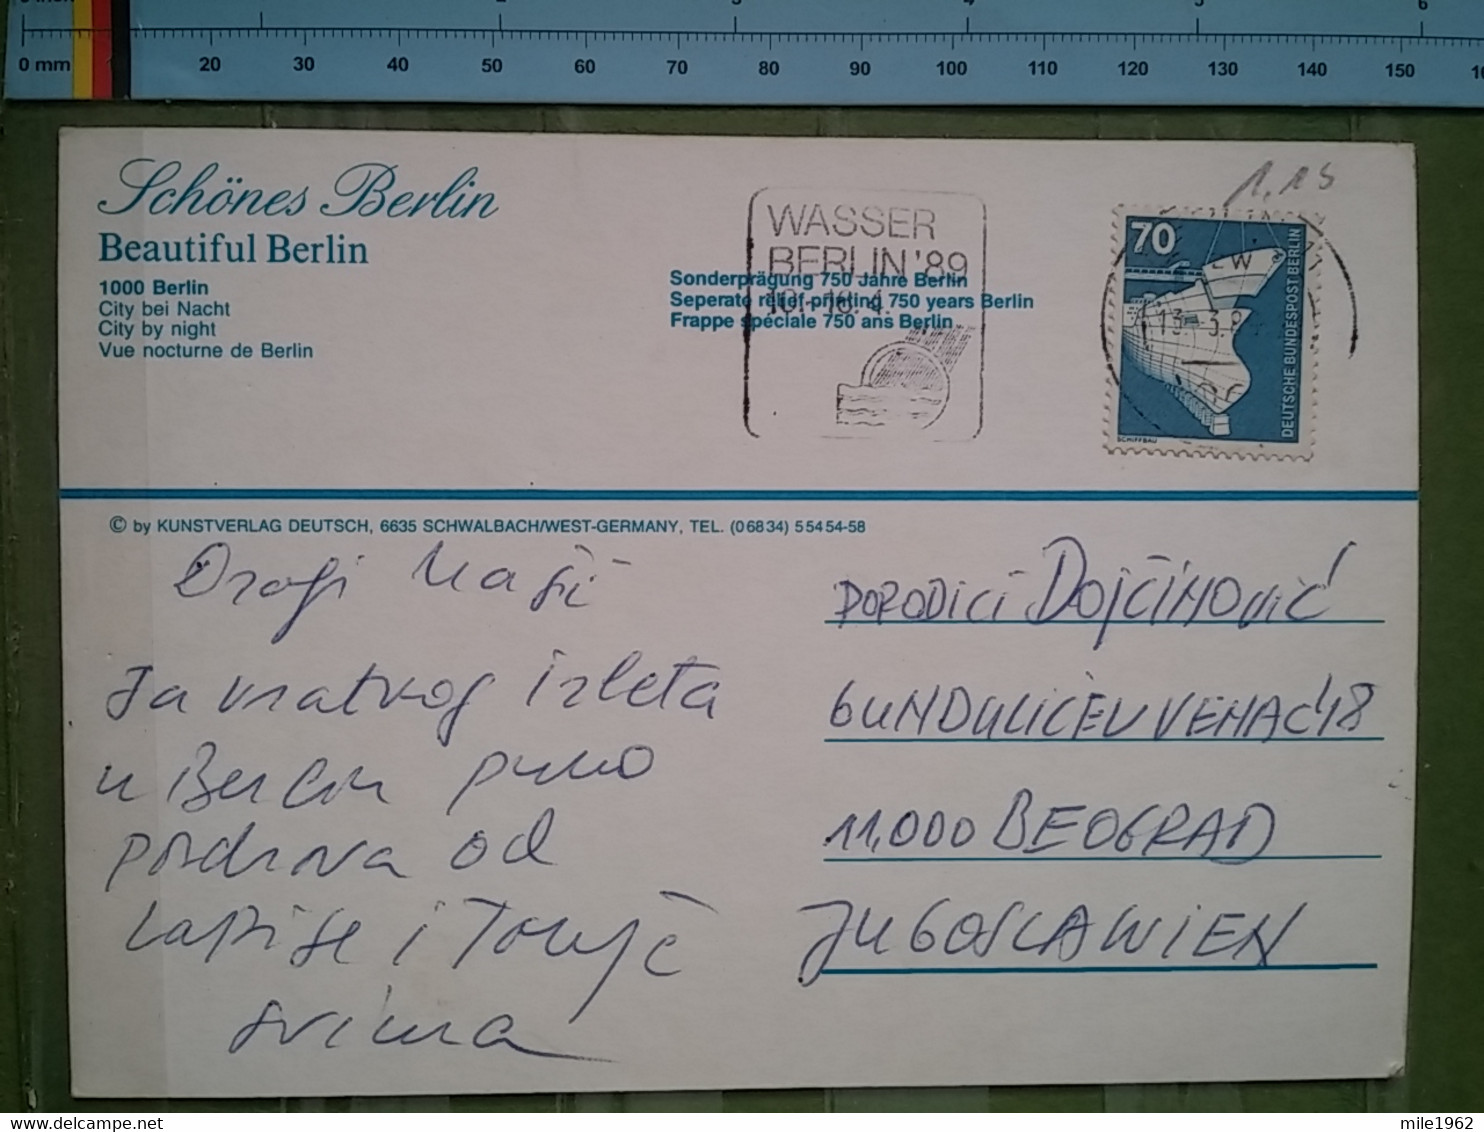 0 mm 20 30 40 50 60 70 80 90 100 110 120 130 140 150
Schönes Berlin
Beautiful Berlin
1000 Berlin
City bei Nacht
City by night
Vue nocturne de Berlin
WASSER
BERLIN '89
10.-16.4.
Sonderprägung 750 Jahre Berlin
Seperate relief-printing 750 years Berlin
Frappe spéciale 750 ans Berlin
1,15
70
DEUTSCHE BUNDESPOST BERLIN
SCHIFFBAU
13.-3.8
© by KUNSTVERLAG DEUTSCH, 6635 SCHWALBACH/WEST-GERMANY, TEL. (0 68 34) 5 54 54-58
Dragi Naši
Sa kratkog izleta
u Berlin puno
pozdrava od
i
svima
PORODICI DOJČINOVIĆ
GUNDULIĆEV VENAC 48
11,000 BEOGRAD
JUGOSLAWIEN
mile1962